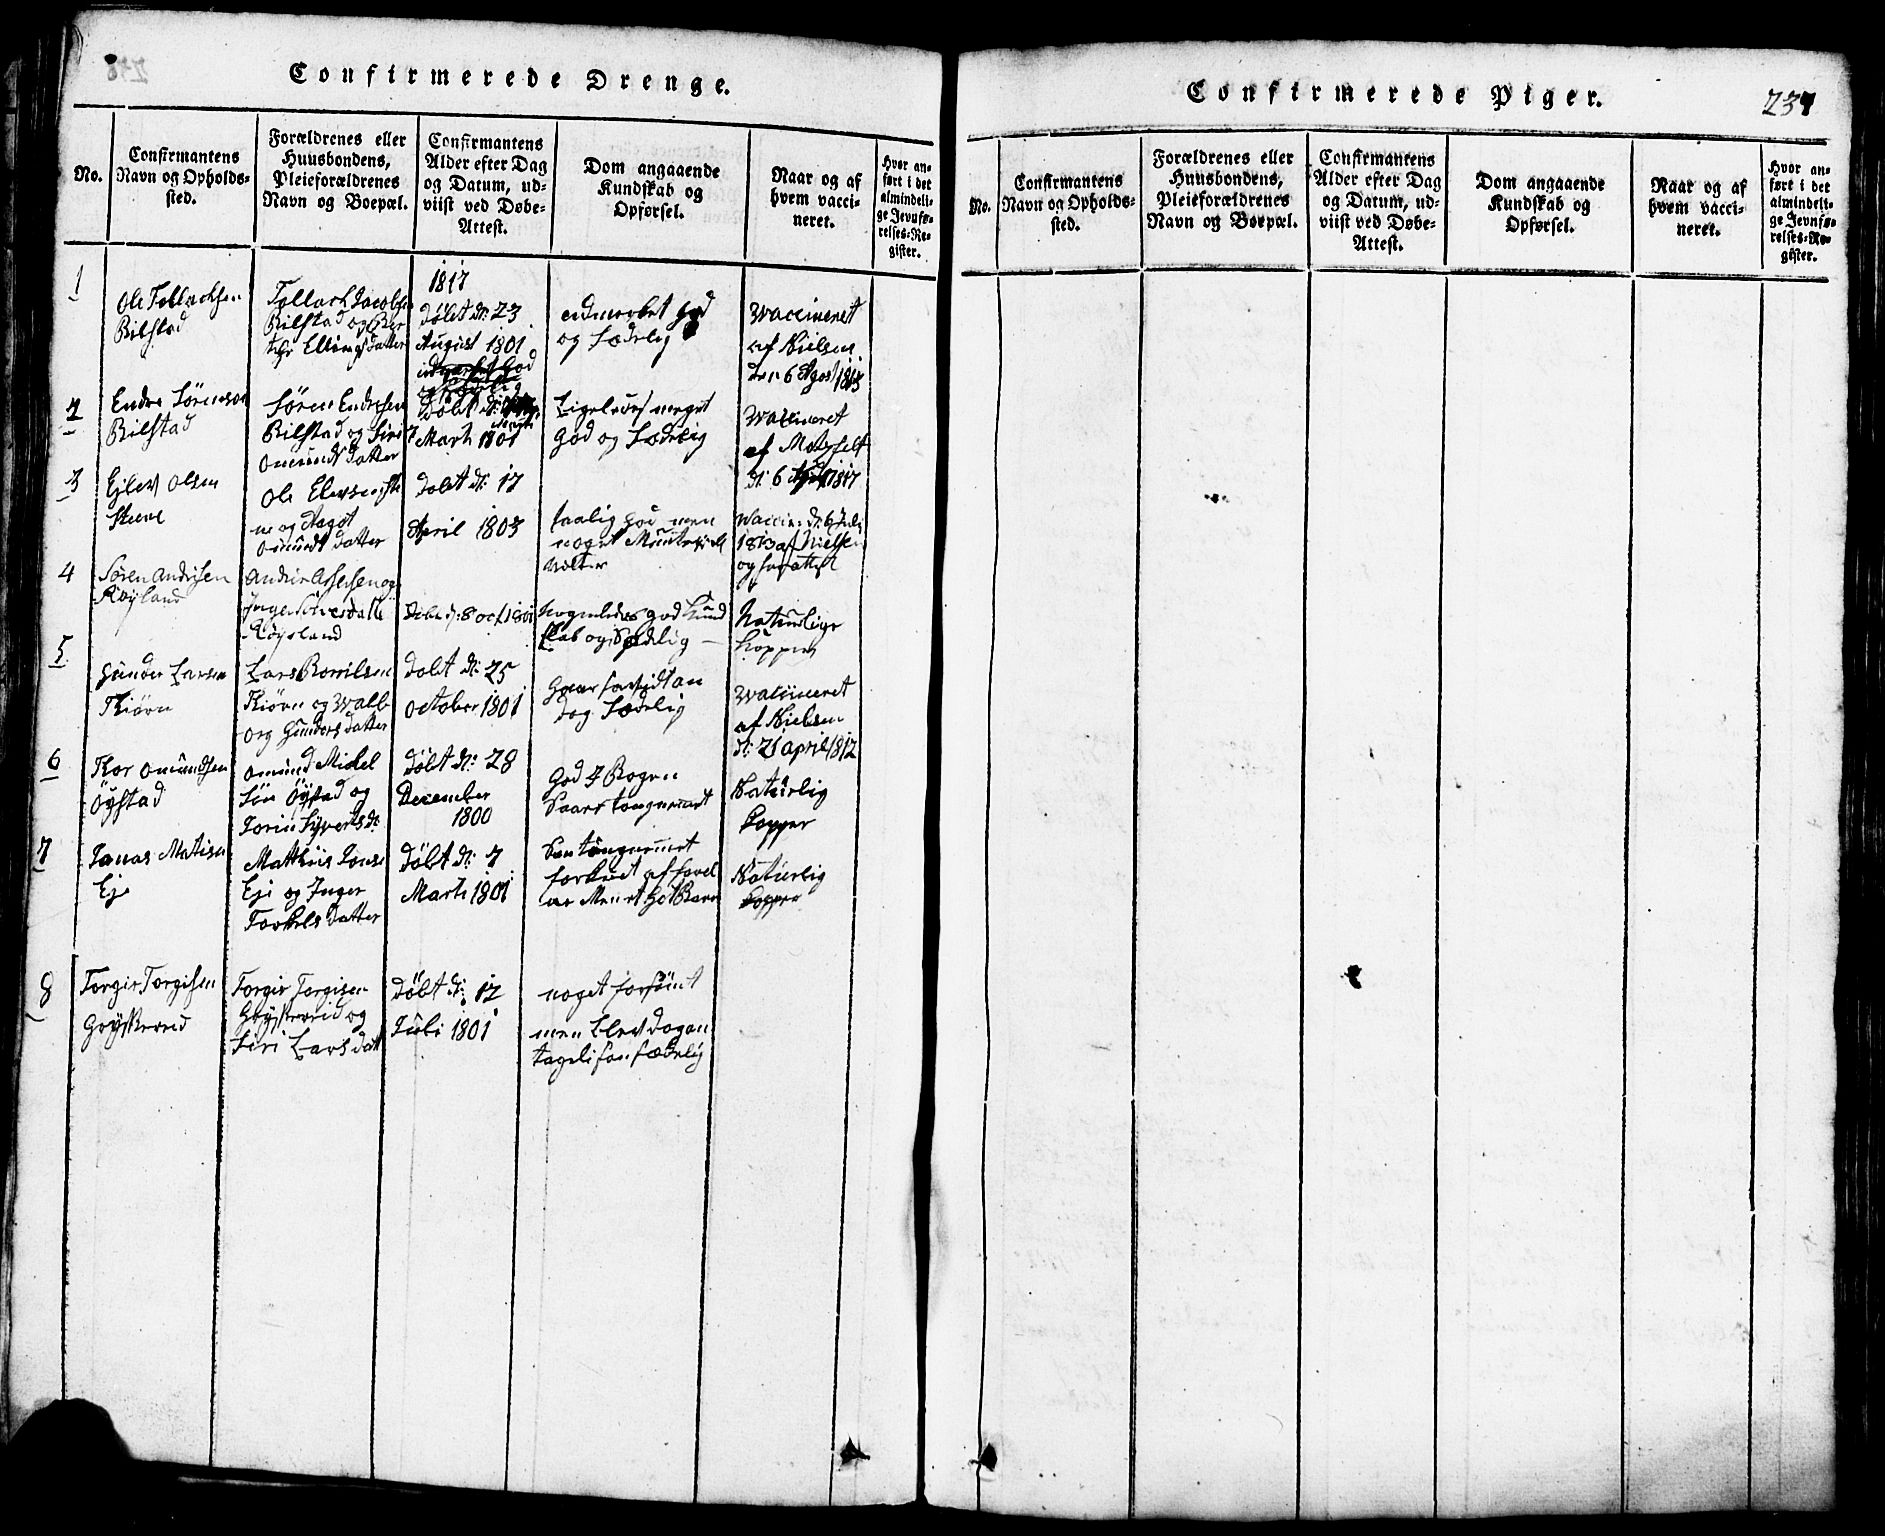 Confirmerede Drenge.
No.
Confirmantens
Navn og Opholds-
sted.
Forældrenes eller
Huusbondens,
Pleieforældrenes
Navn og Boepæl.
Confirmantens
Alder efter Dag
og Datum, ud-
viist ved Døbe-
Attest.
Dom angaaende
Kundskab og
Opførsel.
Naar og af
hvem vacci-
neret.
Hvor an-
ført i det
almindeli-
ge Jevnfø-
relses-Re-
gister.
1
Ole Tollachsen
Rilstad
Tollach Jacobsen
Rilstad og Ber
the Ellings datter
1817
døbt d: 23
August 1801
udmerket god
og Sædelig
Waccineret
af Nielsen
den 6 Agost 1813
2
Endre Sørensen
Rilstad
Søren Endresen
Rilstad og Siri
Omunds datter
Døbt d:
7 Marti 1801
Ligeledes meget
God og Sædelig
Waccineret
af Motzfelt
d: 6 1817
3
Ejlev Olsen
Steene
Ole Elevsen Ste
ne og Aagot
Omunds datter
Dobt d: 17
April 1803
taalig god men
noget
Waccine d: 6 Juli
1813 af Nielsen
og
4
Søren Andrisen
Røyland
Andrie Assersen og
Inger Sørresdatt
Røysland
Døbt d: 8 oct 1801
Nogenledes god Kund
skab og Sædelig –
Naturlige
Kopper
5
Gunder Larsen
Tiörn
Lars Borrilsen
Tiörn og Walb
org Gunders datter
Dobt d: 25
October 1801
Gaar forvidt an
dog Sædelig
Waccineret
af Nielsen
d: 21 april 1812
6
Tor Omundsen
Öÿstad
Omund Mickel
Søn Öÿstad og
Torin Syverts d:
Döbt d: 28
December
1800
God I Bogen
Saare tongnemet
Naturlig
Kopper
7
Jonas Matisen
Eje
Matthiis Jonse
Eje og Inger
Torkels datter
Döbt d: 7
Marti 1801
Son tungnemet
forkuet af forel
are Men et Got Barn
Naturlig
Kopper
8
Torgir Torgisen
Grÿskereid
Torgir Torgisen
Grÿskereid og
Siri Lars datt
Döbt d: 12
Juli 1801
noget forsömt
men blev dog an
tagelig som sædelig
Confirmerede Piger.
237
No.
Confirmantens
Navn og Opholds-
sted.
Forældrenes eller
Huusbondens,
Pleieforældrenes
Navn og Boepæl.
Confirmantens
Alder efter Dag
og Datum, ud-
viist ved Døbe-
Attest.
Dom angaaende
Kundskab og
Opførsel.
Naar og af
hvem vacci-
neret.
Hvor an-
ført i det
almindeli-
ge Jevnfø-
relses-Re-
gister.